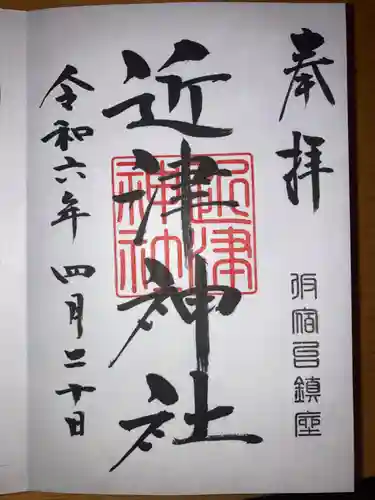 奉拝
宿邑鎮座
近津神社
近津
神社
令和六年四月二十日